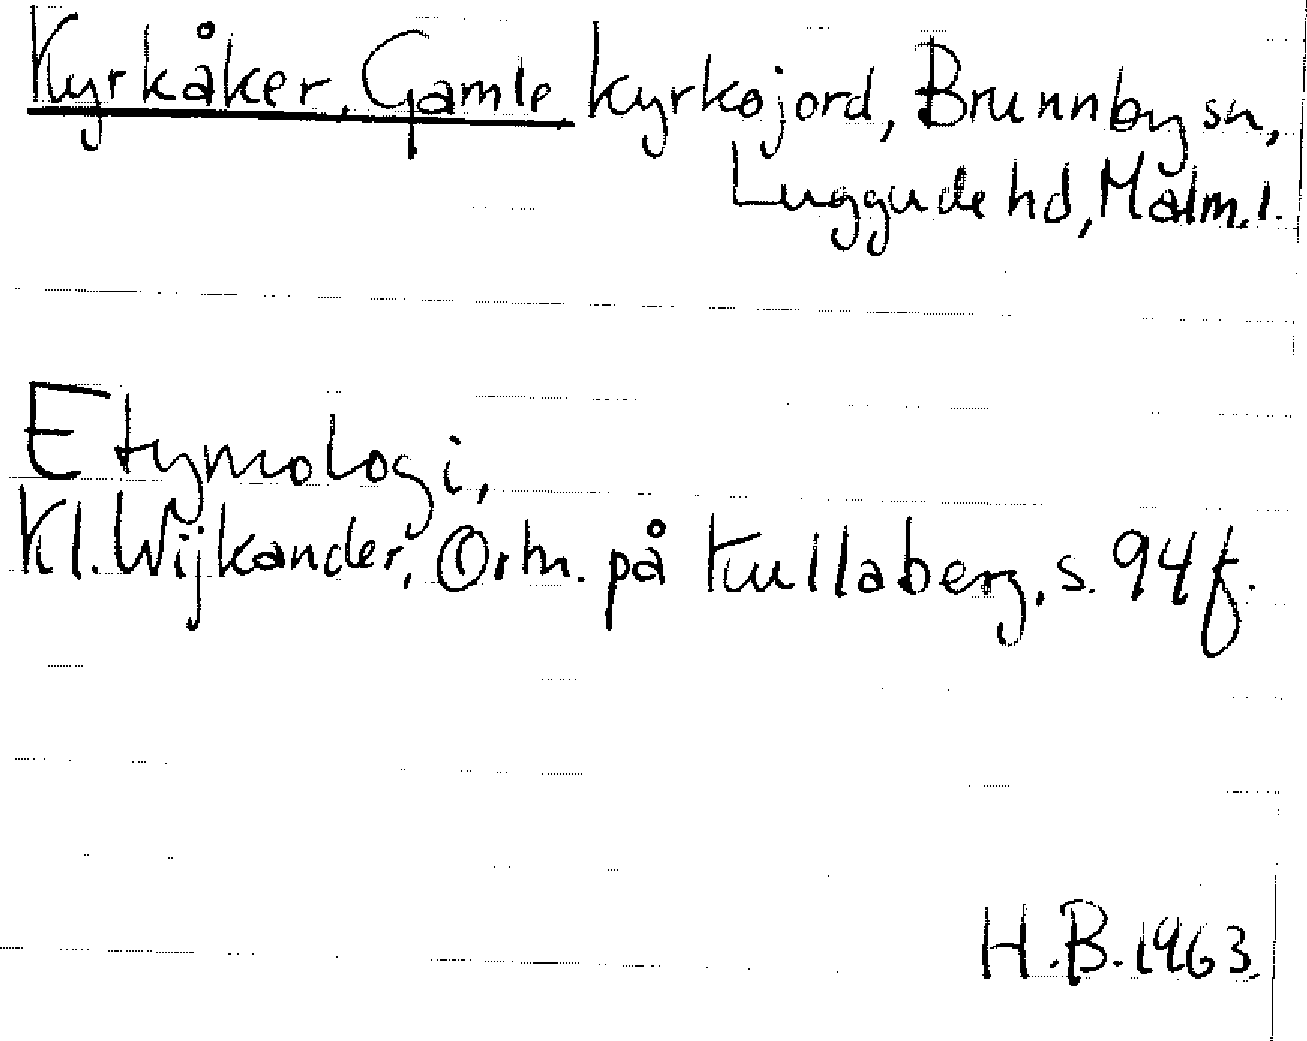 Kyrkåker, Gamle kyrkojord, Brunnby sn,
Luggude hd, Malm. l.
Etymologi,
Kl. Wijkander, Ortn. på Kullaberg, s. 94 f.
H.B. 1963.